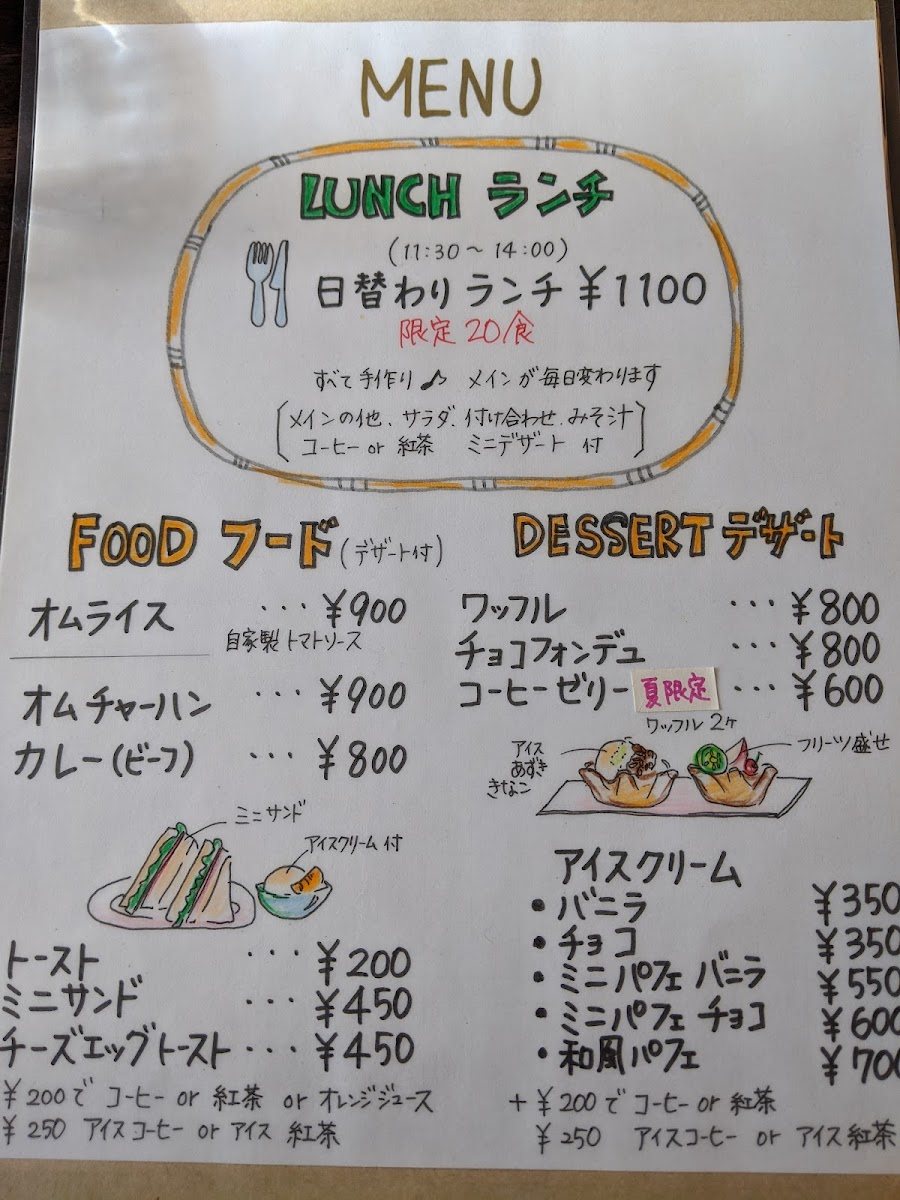 MENU
LUNCH ランチ
(11:30～14:00)
日替わりランチ ¥1100
限定20食
すべて手作り♪ メインが毎日変わります
[メインの他、サラダ、付け合わせ、みそ汁
コーヒー or 紅茶 ミニデザート 付]
FOOD フード(デザート付)
オムライス ・・・ ¥900
自家製トマトソース
オムチャーハン ・・・ ¥900
カレー(ビーフ) ・・・ ¥800
ミニサンド
アイスクリーム付
トースト ・・・ ¥200
ミニサンド ・・・ ¥450
チーズエッグトースト ・・・ ¥450
¥200で コーヒー or 紅茶 or オレンジジュース
¥250 アイスコーヒー or アイス紅茶
DESSERT デザート
ワッフル ・・・ ¥800
チョコフォンデュ ・・・ ¥800
コーヒーゼリー 夏限定 ・・・ ¥600
ワッフル2ケ
アイス
あずき
きなこ
フリーツ盛せ
アイスクリーム
・バニラ ¥350
・チョコ ¥350
・ミニパフェ バニラ ¥550
・ミニパフェ チョコ ¥600
・和風パフェ ¥700
+¥200で コーヒー or 紅茶
¥250 アイスコーヒー or アイス紅茶